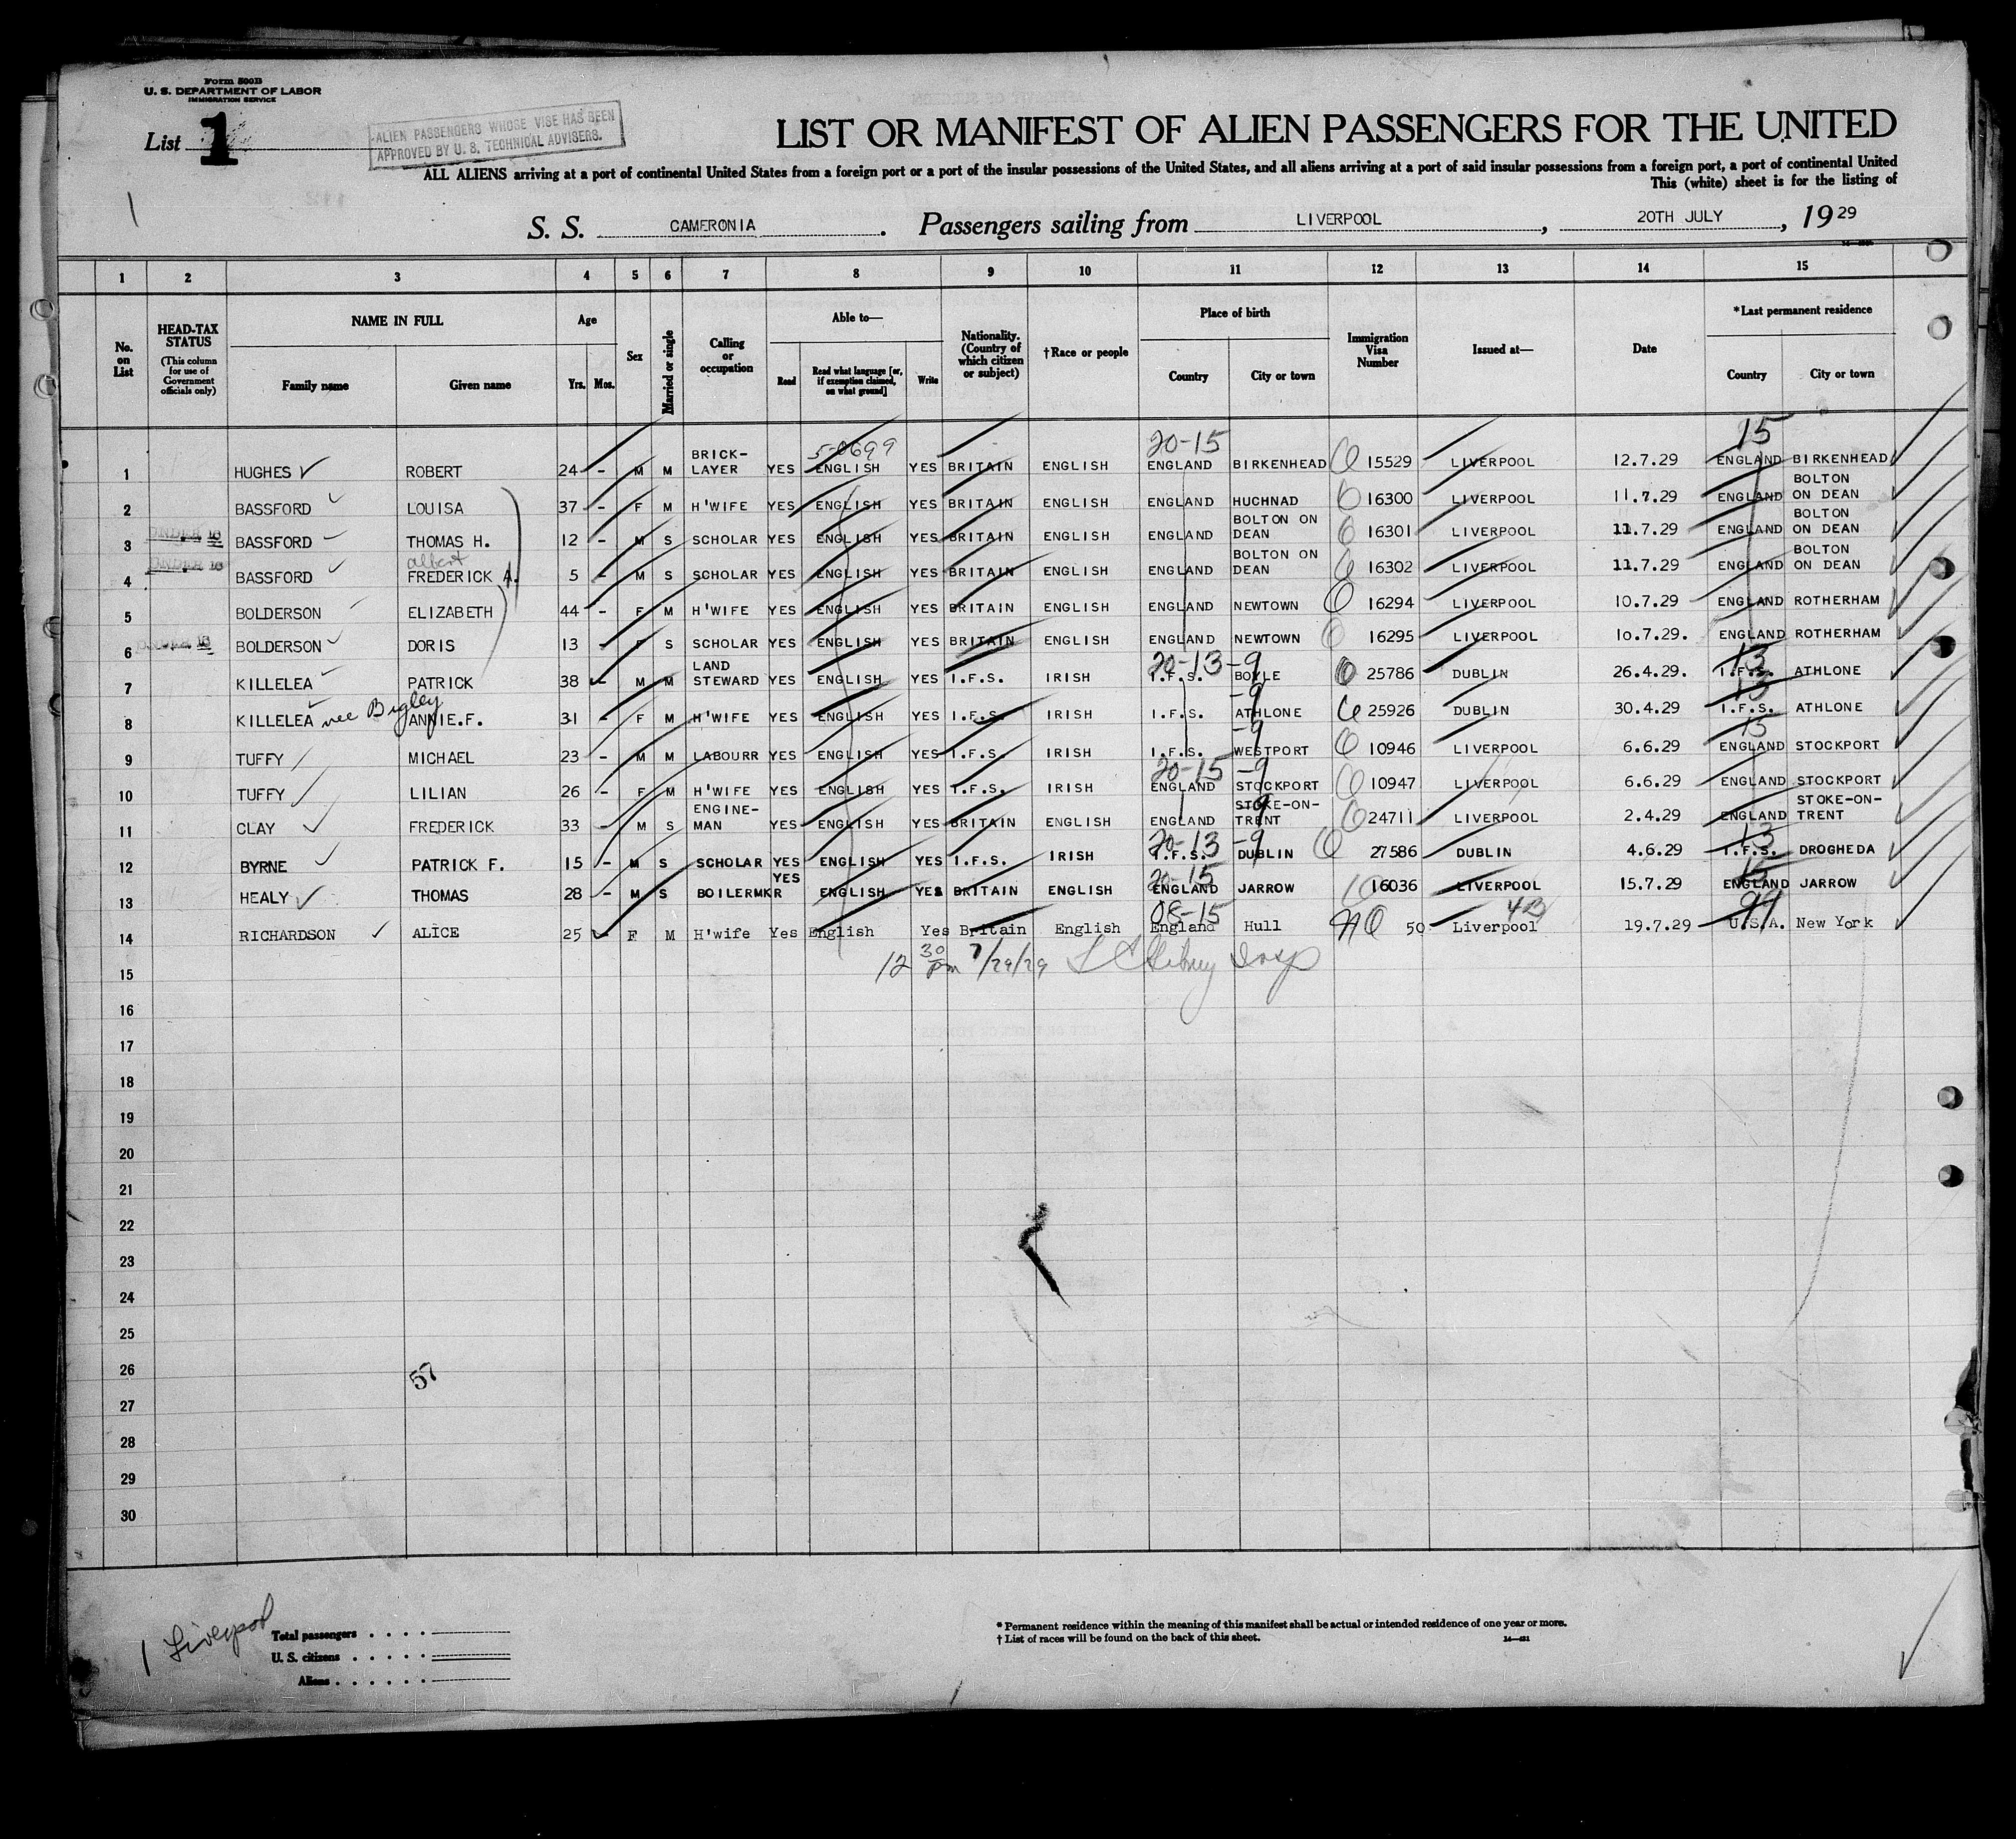 Form 500B
U. S. DEPARTMENT OF LABOR
IMMIGRATION SERVICE
List 1
ALIEN PASSENGERS WHOSE VISE HAS BEEN
APPROVED BY U. S. TECHNICAL ADVISERS.
LIST OR MANIFEST OF ALIEN PASSENGERS FOR THE UNITED
ALL ALIENS arriving at a port of continental United States from a foreign port or a port of the insular possessions of the United States, and all aliens arriving at a port of said insular possessions from a foreign port, a port of continental United
This (white) sheet is for the listing of
S. S. CAMERONIA. Passengers sailing from LIVERPOOL, 20TH JULY, 1929
1 2 3 4 5 6 7 8 9 10 11 12 13 14 15
No. on List
HEAD-TAX STATUS
(This column for use of Government officials only)
NAME IN FULL
Family name
Given name
Age
Yrs. Mos.
Sex
Married or single
Calling or occupation
Able to—
Read
Read what language [or, if exemption claimed, on what ground]
Write
Nationality. (Country of which citizen or subject)
†Race or people
Place of birth
Country
City or town
Immigration Visa Number
Issued at—
Date
*Last permanent residence
Country
City or town
5-0699 20-15 15
1 HUGHES ROBERT 24 – M M BRICK-LAYER YES ENGLISH YES BRITAIN ENGLISH ENGLAND BIRKENHEAD 15529 LIVERPOOL 12.7.29 ENGLAND BIRKENHEAD
2 BASSFORD LOUISA 37 – F M H'WIFE YES ENGLISH YES BRITAIN ENGLISH ENGLAND HUCHNAD 16300 LIVERPOOL 11.7.29 ENGLAND BOLTON ON DEAN
3 UNDER 16 BASSFORD THOMAS H. 12 – M S SCHOLAR YES ENGLISH YES BRITAIN ENGLISH ENGLAND BOLTON ON DEAN 16301 LIVERPOOL 11.7.29 ENGLAND BOLTON ON DEAN
albert
4 UNDER 16 BASSFORD FREDERICK A. 5 – M S SCHOLAR YES ENGLISH YES BRITAIN ENGLISH ENGLAND BOLTON ON DEAN 16302 LIVERPOOL 11.7.29 ENGLAND BOLTON ON DEAN
5 BOLDERSON ELIZABETH 44 – F M H'WIFE YES ENGLISH YES BRITAIN ENGLISH ENGLAND NEWTOWN 16294 LIVERPOOL 10.7.29 ENGLAND ROTHERHAM
6 UNDER 16 BOLDERSON DORIS 13 – F S SCHOLAR YES ENGLISH YES BRITAIN ENGLISH ENGLAND NEWTOWN 16295 LIVERPOOL 10.7.29. ENGLAND ROTHERHAM
20-13 -9 13
7 KILLELEA PATRICK 38 – M M LAND STEWARD YES ENGLISH YES I.F.S. IRISH I.F.S. BOYLE 25786 DUBLIN 26.4.29. I.F.S. ATHLONE
-9 13
8 KILLELEA nee Bigley ANNIE.F. 31 – F M H'WIFE YES ENGLISH YES I.F.S. IRISH I.F.S. ATHLONE 25926 DUBLIN 30.4.29 I.F.S. ATHLONE
-9 15
9 TUFFY MICHAEL 23 – M M LABOURR YES ENGLISH YES I.F.S. IRISH I.F.S. WESTPORT 10946 LIVERPOOL 6.6.29 ENGLAND STOCKPORT
20-15 -9
10 TUFFY LILIAN 26 – F M H'WIFE YES ENGLISH YES I.F.S. IRISH ENGLAND STOCKPORT 10947 LIVERPOOL 6.6.29 ENGLAND STOCKPORT
9
11 CLAY FREDERICK 33 – M S ENGINE-MAN YES ENGLISH YES BRITAIN ENGLISH ENGLAND STOKE-ON-TRENT 24711 LIVERPOOL 2.4.29 ENGLAND STOKE-ON-TRENT
20-13 -9 13
12 BYRNE PATRICK F. 15 – M S SCHOLAR YES ENGLISH YES I.F.S. IRISH I.F.S. DUBLIN 27586 DUBLIN 4.6.29 I.F.S. DROGHEDA
20-15 15
13 HEALY THOMAS 28 – M S BOILERMKR YES ENGLISH YES BRITAIN ENGLISH ENGLAND JARROW 16036 LIVERPOOL 15.7.29 ENGLAND JARROW
08-15 4B 99
14 RICHARDSON ALICE 25 F M H'wife Yes English Yes Britain English England Hull NQ 50 Liverpool 19.7.29 U.S.A. New York
12 30 pm 7/29/29
15
16
17
18
19
20
21
22
23
24
25
26
57
27
28
29
30
1 Liverpool
Total passengers
U. S. citizens
Aliens
* Permanent residence within the meaning of this manifest shall be actual or intended residence of one year or more.
† List of races will be found on the back of this sheet.